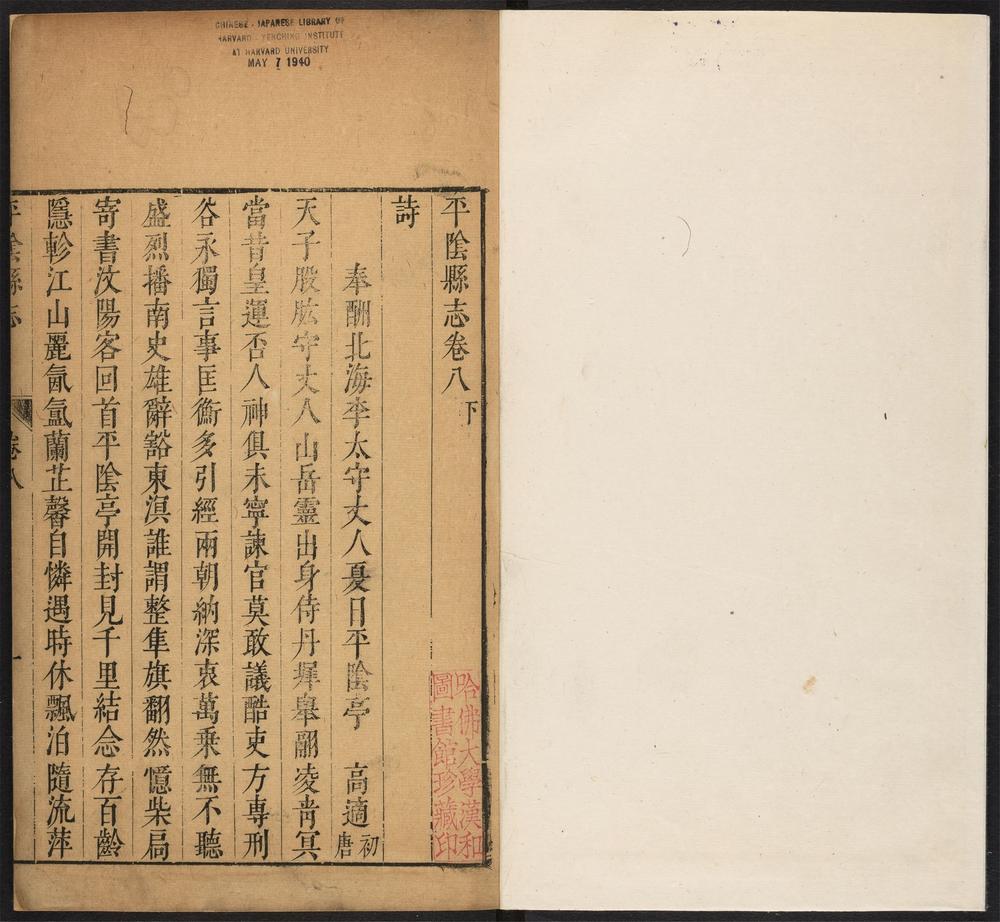 CHINESE - JAPANESE LIBRARY OF
HARVARD - YENCHING INSTITUTE
AT HARVARD UNIVERSITY
MAY 7 1940
平陰縣志卷八下
詩
奉酬北海李太守丈人夏日平陰亭 高適初唐
天子股肱守丈人山岳靈出身侍丹墀舉翮凌靑冥
當昔皇運否人神俱未寧諫官莫敢議酷吏方專刑
谷永獨言事匡衡多引經兩朝納深衷萬乗無不聽
盛烈播南史雄辭豁東溟誰謂整隼旗翻然憶柴扃
寄書汶陽客回首平陰亭開封見千里結念存百齡
隱軫江山麗氤氲蘭芷馨自憐遇時休飄泊隨流萍
平陰縣志
卷八
一
哈佛大學漢和
圖書館珍藏印